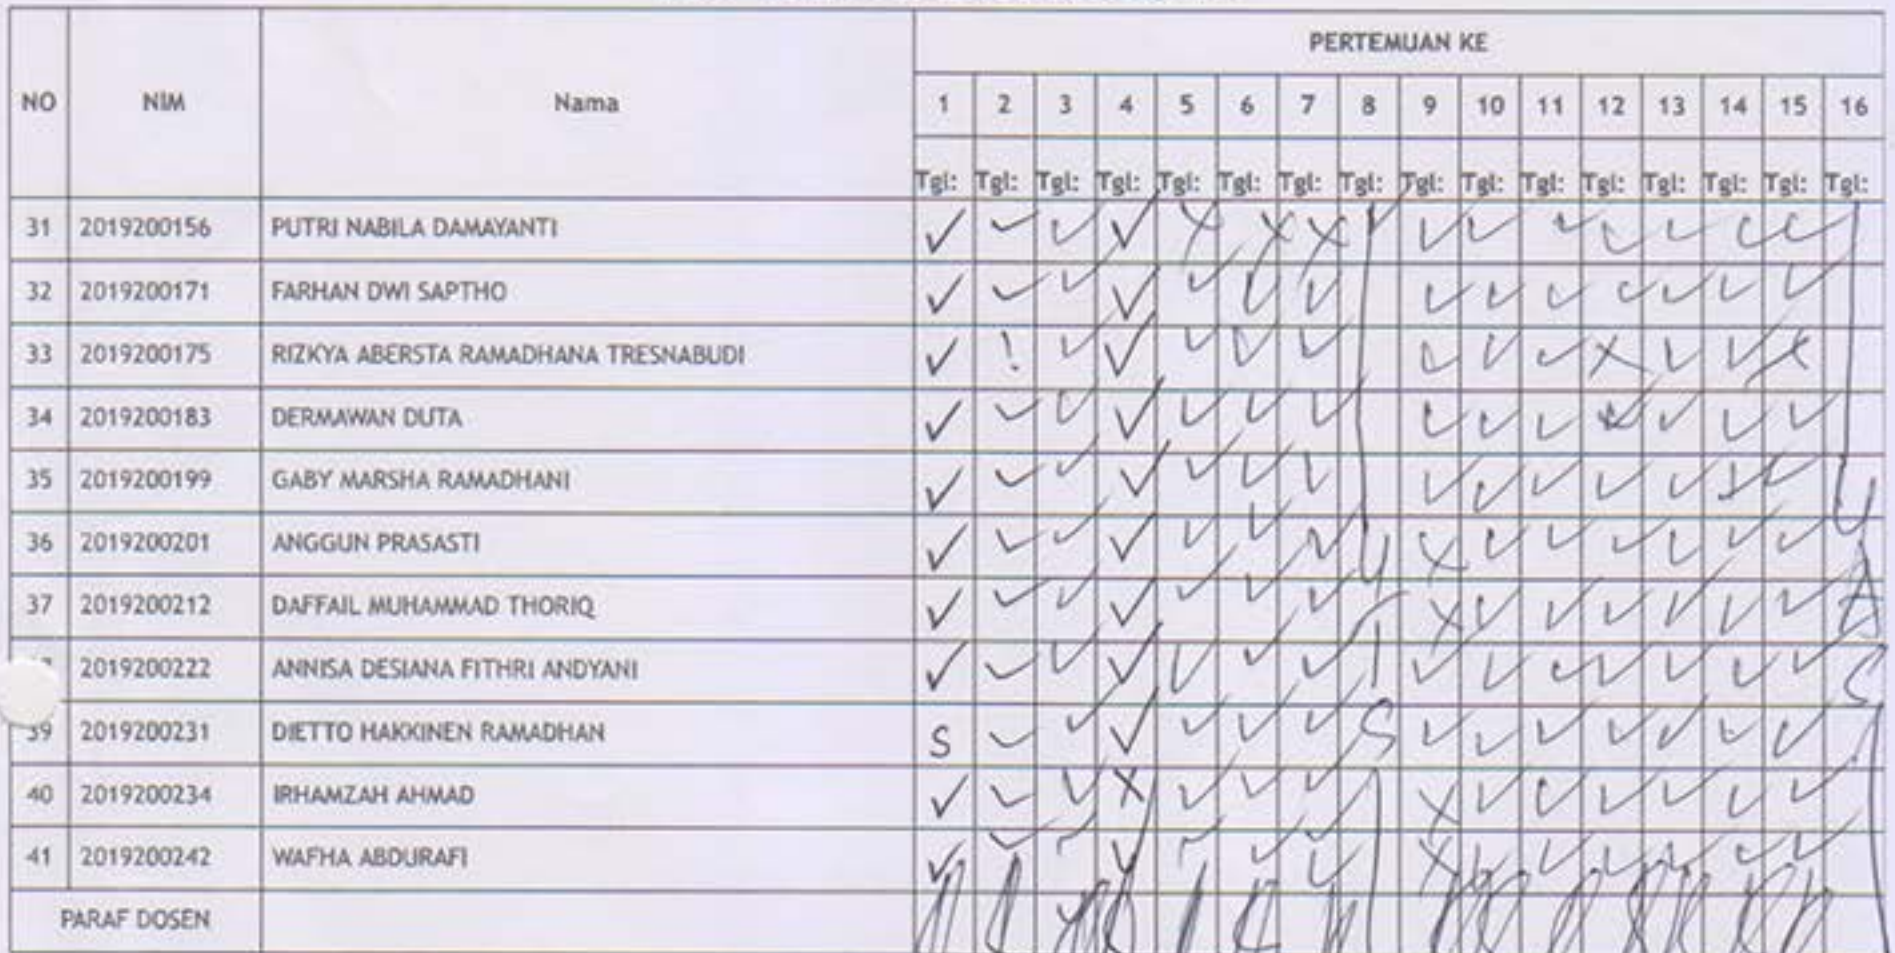 PERTEMUAN KE
NO NIM Nama 1 2 3 4 5 6 7 8 9 10 11 12 13 14 15 16
Tgl: Tgl: Tgl: Tgl: Tgl: Tgl: Tgl: Tgl: Tgl: Tgl: Tgl: Tgl: Tgl: Tgl: Tgl: Tgl:
31 2019200156 PUTRI NABILA DAMAYANTI ✓ ✓ ✓ ✓ X X X ✓ ✓ ✓ ✓ ✓ ✓ ✓
32 2019200171 FARHAN DWI SAPTHO ✓ ✓ ✓ ✓ ✓ ✓ ✓ ✓ ✓ ✓ ✓ ✓ ✓ ✓
33 2019200175 RIZKYA ABERSTA RAMADHANA TRESNABUDI ✓ ! ✓ ✓ ✓ ✓ ✓ ✓ ✓ ✓ X ✓ ✓ X
34 2019200183 DERMAWAN DUTA ✓ ✓ ✓ ✓ ✓ ✓ ✓ ✓ ✓ ✓ ✓ ✓ ✓
35 2019200199 GABY MARSHA RAMADHANI ✓ ✓ ✓ ✓ ✓ ✓ ✓ ✓ ✓ ✓ ✓ ✓ ✓ ✓ U
36 2019200201 ANGGUN PRASASTI ✓ ✓ ✓ ✓ ✓ ✓ ✓ U X ✓ ✓ ✓ ✓ ✓ ✓
37 2019200212 DAFFAIL MUHAMMAD THORIQ ✓ ✓ ✓ ✓ ✓ ✓ ✓ T X ✓ ✓ ✓ ✓ ✓ ✓ A
2019200222 ANNISA DESIANA FITHRI ANDYANI ✓ ✓ ✓ ✓ ✓ ✓ ✓ ✓ ✓ ✓ ✓ ✓ ✓ ✓ S
39 2019200231 DIETTO HAKKINEN RAMADHAN S ✓ ✓ ✓ ✓ ✓ ✓ S ✓ ✓ ✓ ✓ ✓ ✓ ✓
40 2019200234 IRHAMZAH AHMAD ✓ ✓ ✓ X ✓ ✓ ✓ X ✓ ✓ ✓ ✓ ✓ ✓
41 2019200242 WAFHA ABDURAFI ✓ ✓ ✓ ✓ ✓ ✓ ✓ X ✓ ✓ ✓ ✓ ✓ ✓
PARAF DOSEN